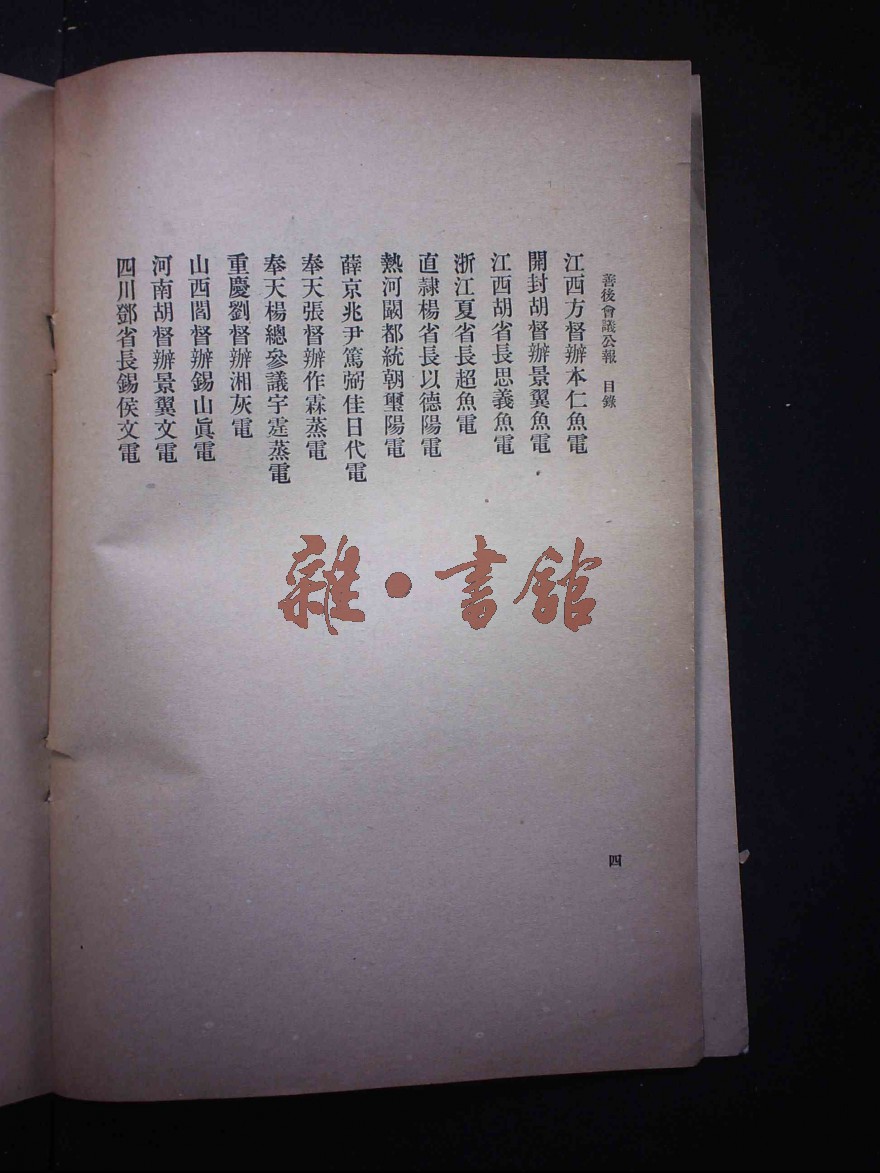 善後會議公報　目錄
江西方督辦本仁魚電
開封胡督辦景翼魚電
江西胡省長思義魚電
浙江夏省長超魚電
直隸楊省長以德陽電
熱河闞都統朝璽陽電
薛京兆尹篤弼佳日代電
奉天張督辦作霖蒸電
奉天楊總參議宇霆蒸電
重慶劉督辦湘灰電
山西閻督辦錫山眞電
河南胡督辦景翼文電
四川鄧省長錫侯文電
四
雜·書館